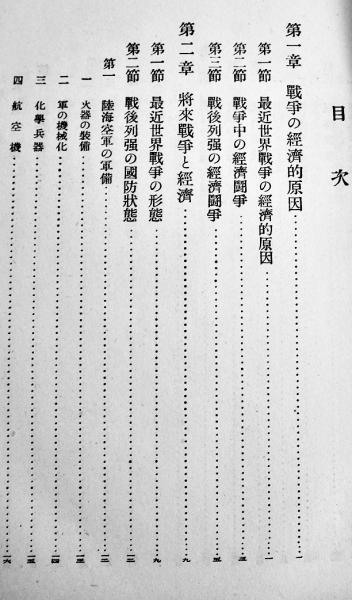 目次
第一章 戰爭の經濟的原因……一
第一節 最近世界戰爭の經濟的原因……一
第二節 戰爭中の經濟鬪爭……三
第三節 戰後列强の經濟鬪爭……五
第二章 將來戰爭と經濟……九
第一節 最近世界戰爭の形態……九
第二節 戰後列强の國防狀態……三
第一 陸海空軍の軍備……三
一 火器の裝備……三
二 軍の機械化……四
三 化學兵器……五
四 航空機……一六